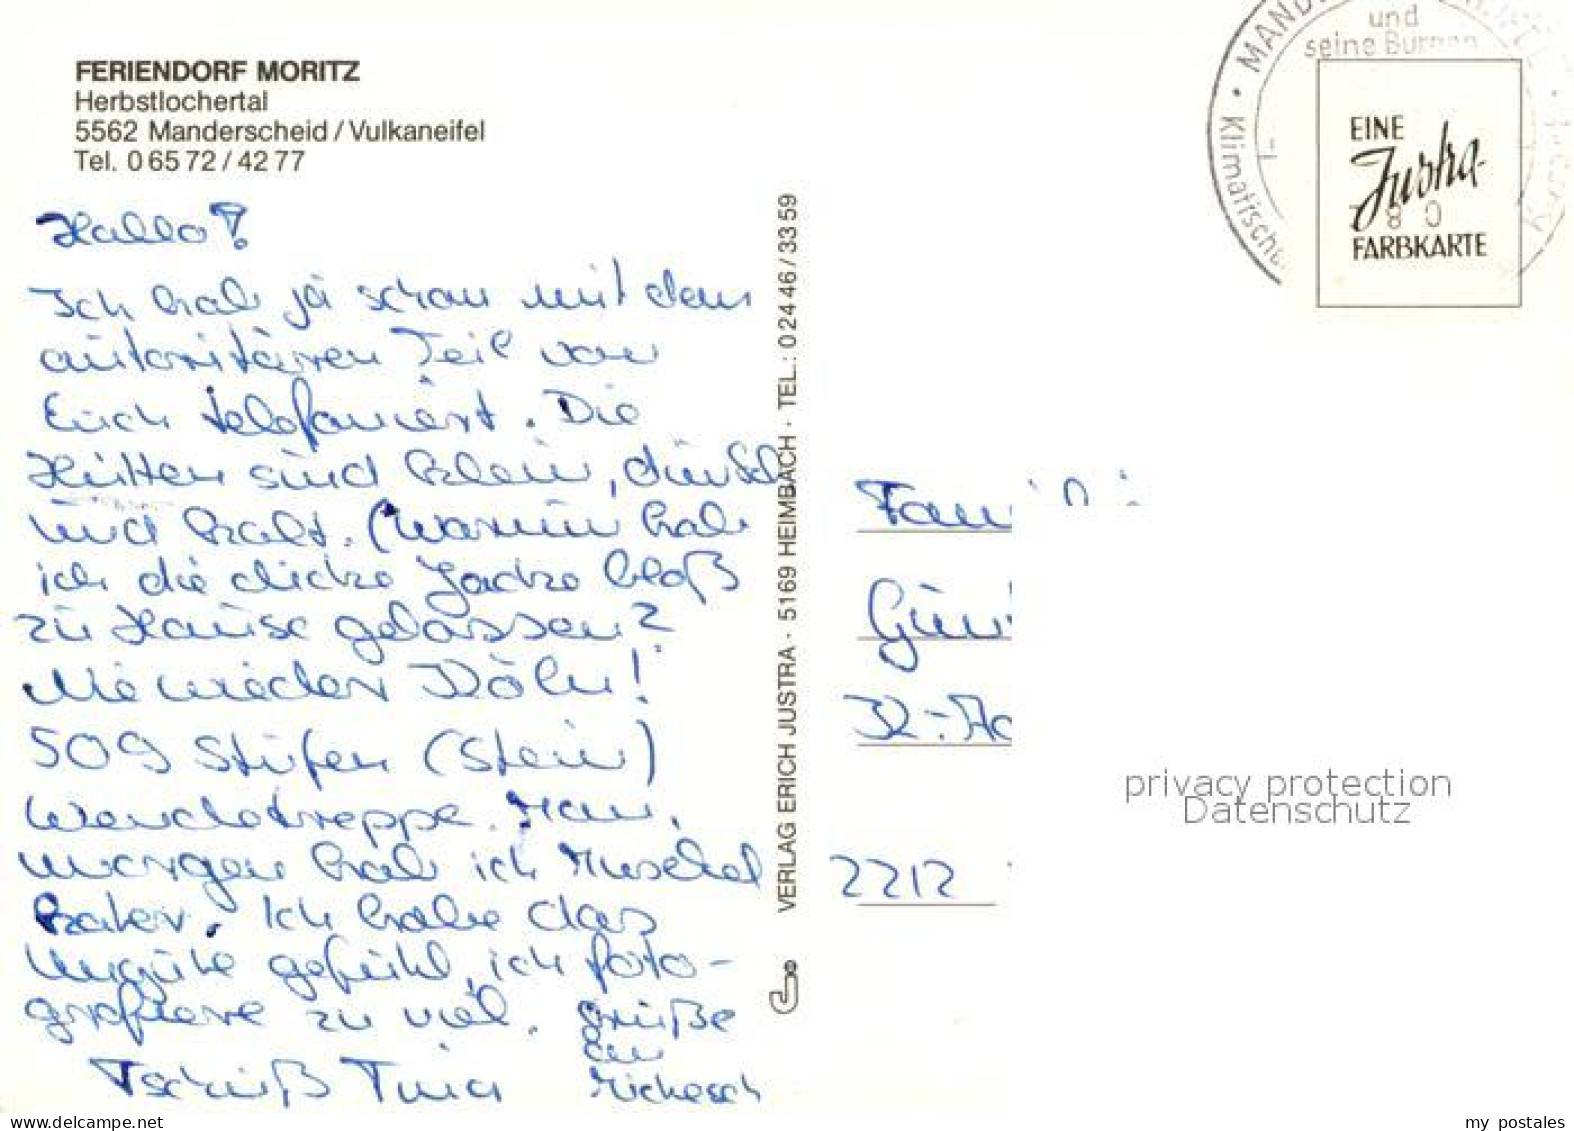 FERIENDORF MORITZ
Herbstlochertal
5562 Manderscheid / Vulkaneifel
Tel. 0 65 72 / 42 77
Hallo!
Ich hab ja schon mit dem
autoritären Teil von
Euch telefoniert. Die
Hütten sind klein, dunkel
und kalt. (Warum hab
ich die dicke Jacke bloß
zu Hause gelassen?
Nie wieder Köln!
509 Stufen (Stein)
Wendeltreppe. Man,
morgen hab ich Muskel
kater. Ich habe das
ungute gefühl, ich foto-
grafiere zu viel. Grüße
an
Tschüß Tina
VERLAG ERICH JUSTRA · 5169 HEIMBACH · TEL.: 0 24 46 / 33 59
und
seine Burgen
Klimatische
EINE
Justra-
FARBKARTE
2212
privacy protection
Datenschutz
www.delcampe.net
my_postales